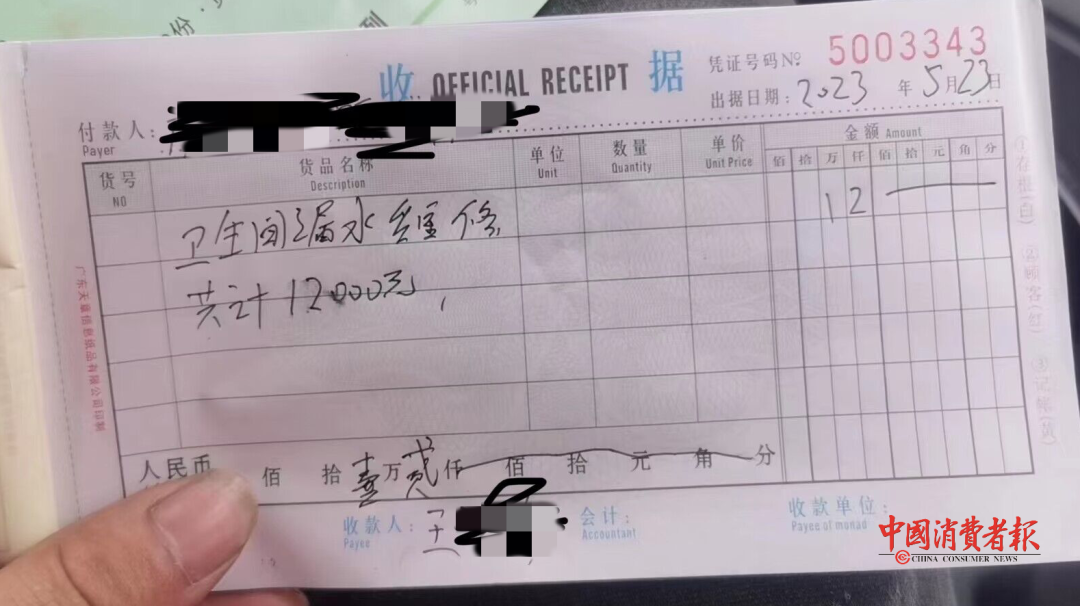 份
列
收 OFFICIAL RECEIPT 据
凭证号码№ 5003343
出据日期：2023年5月23日
付款人：
Payer
货号 货品名称 单位 数量 单价 金额 Amount
NO Description Unit Quantity Unit Price 佰 拾 万 仟 佰 拾 元 角 分
卫生间漏水重修 1 2
共计12000元
人民币 佰 拾 壹万 贰仟 佰 拾 元 角 分
收款人： 会计： 收款单位：
Payee Accountant Payee of monad
①存根(白) ②顾客(红) ③记帐(黄)
中國消費者報
CHINA CONSUMER NEWS